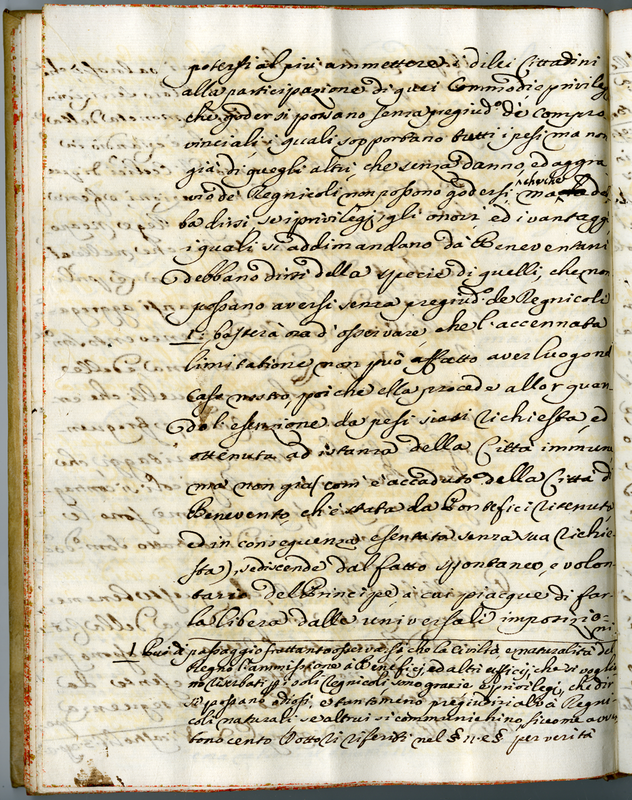 potersi al più ammettere i di lei Cittadini
alla participazione di quei Commodi e privilegj
che goder si possano senza pregiud.º de' Compro
vinciali, i quali sopportano tutti i pesi ma non
già di quegli altri, che senza danno, ed aggra
vio de' Regnicoli non possono godersi,
ba dirsi se i privilegj, gli onori, ed i vantaggi
i quali si addimandano da' Beneventani
debbano dirsi della specie di quelli, che non
possano aversi senza pregiud.º de' Regnicoli
1: basterà ora d'osservare, che l'accennata
limitatione non può affatto aver luogo nel
Caso nostro, poiche ella procede allor quan
do l'esenzione da pesi siasi richiesta, ed
ottenuta ad istanza della Città immune
ma non già com'è accaduto della Città di
Benevento, ch'è stata da Pontefici ritenuta
ed in conseguenza esentata senza sua richie
sta), se discende dal fatto spontaneo, e volon
tario del Principe, a cui piacque di far
la libera dalle universali imposizio-
ni
1 passaggio frattanto osservasi che la Civiltà, e naturalità del
Regno l'ammissione a' Beneficj, ed altri officj, che si voglio
no riserbati pe' soli Regnicoli, sono grazie, e privilegj, che dir
si possano odiosi, e tantomeno pregiudiziali a' Regni
coli naturali se altrui si communichino, siccome
tono cento Dottori riferiti nel § n. e § per verità